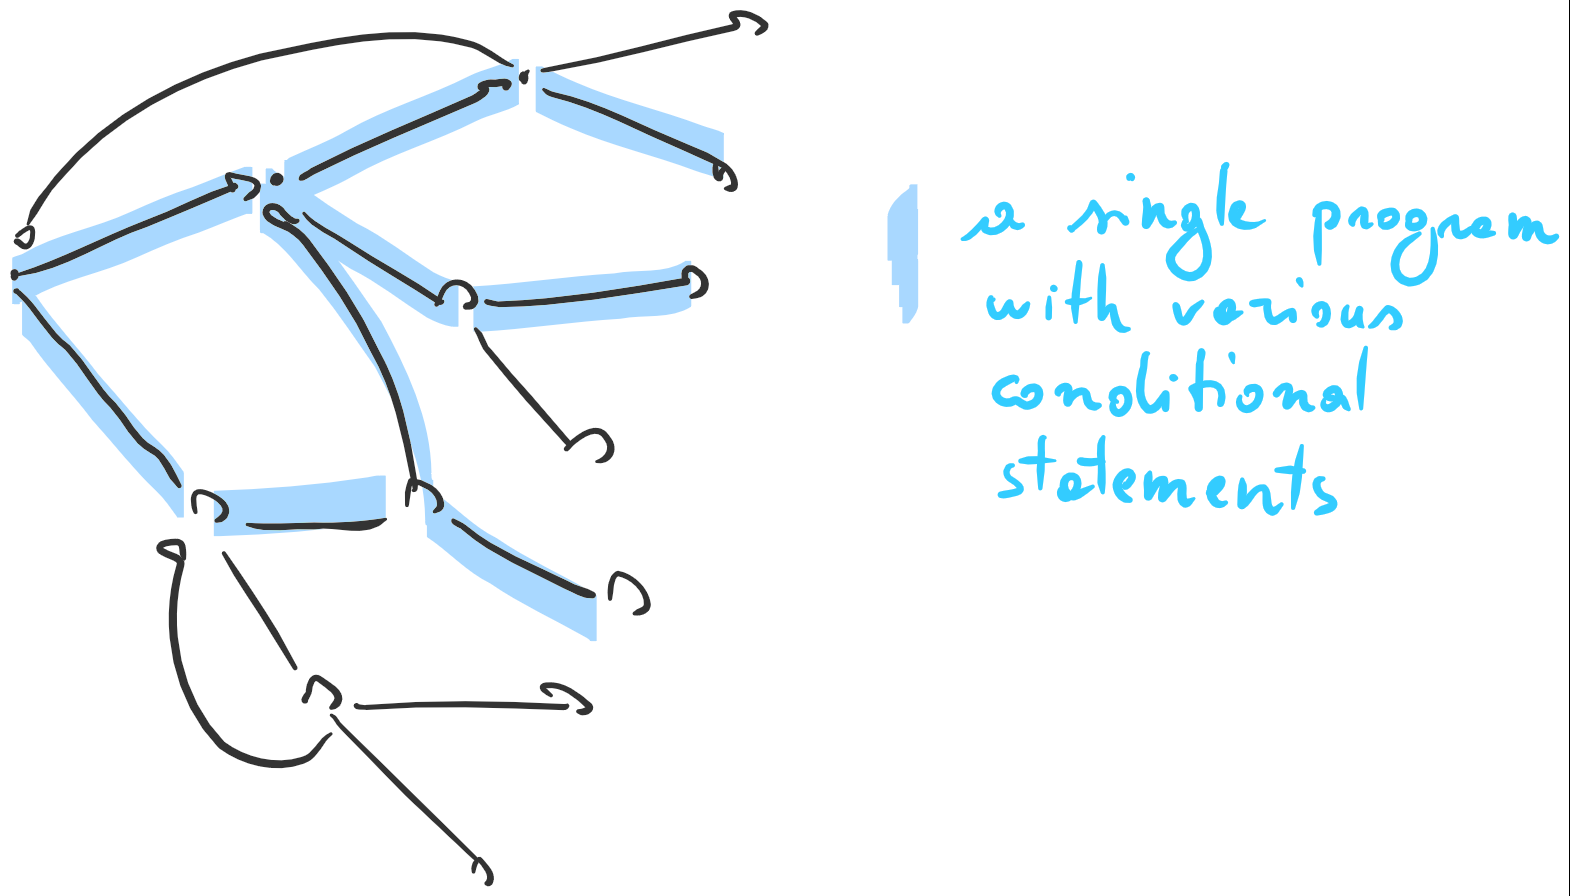 a single program
with various
conditional
statements